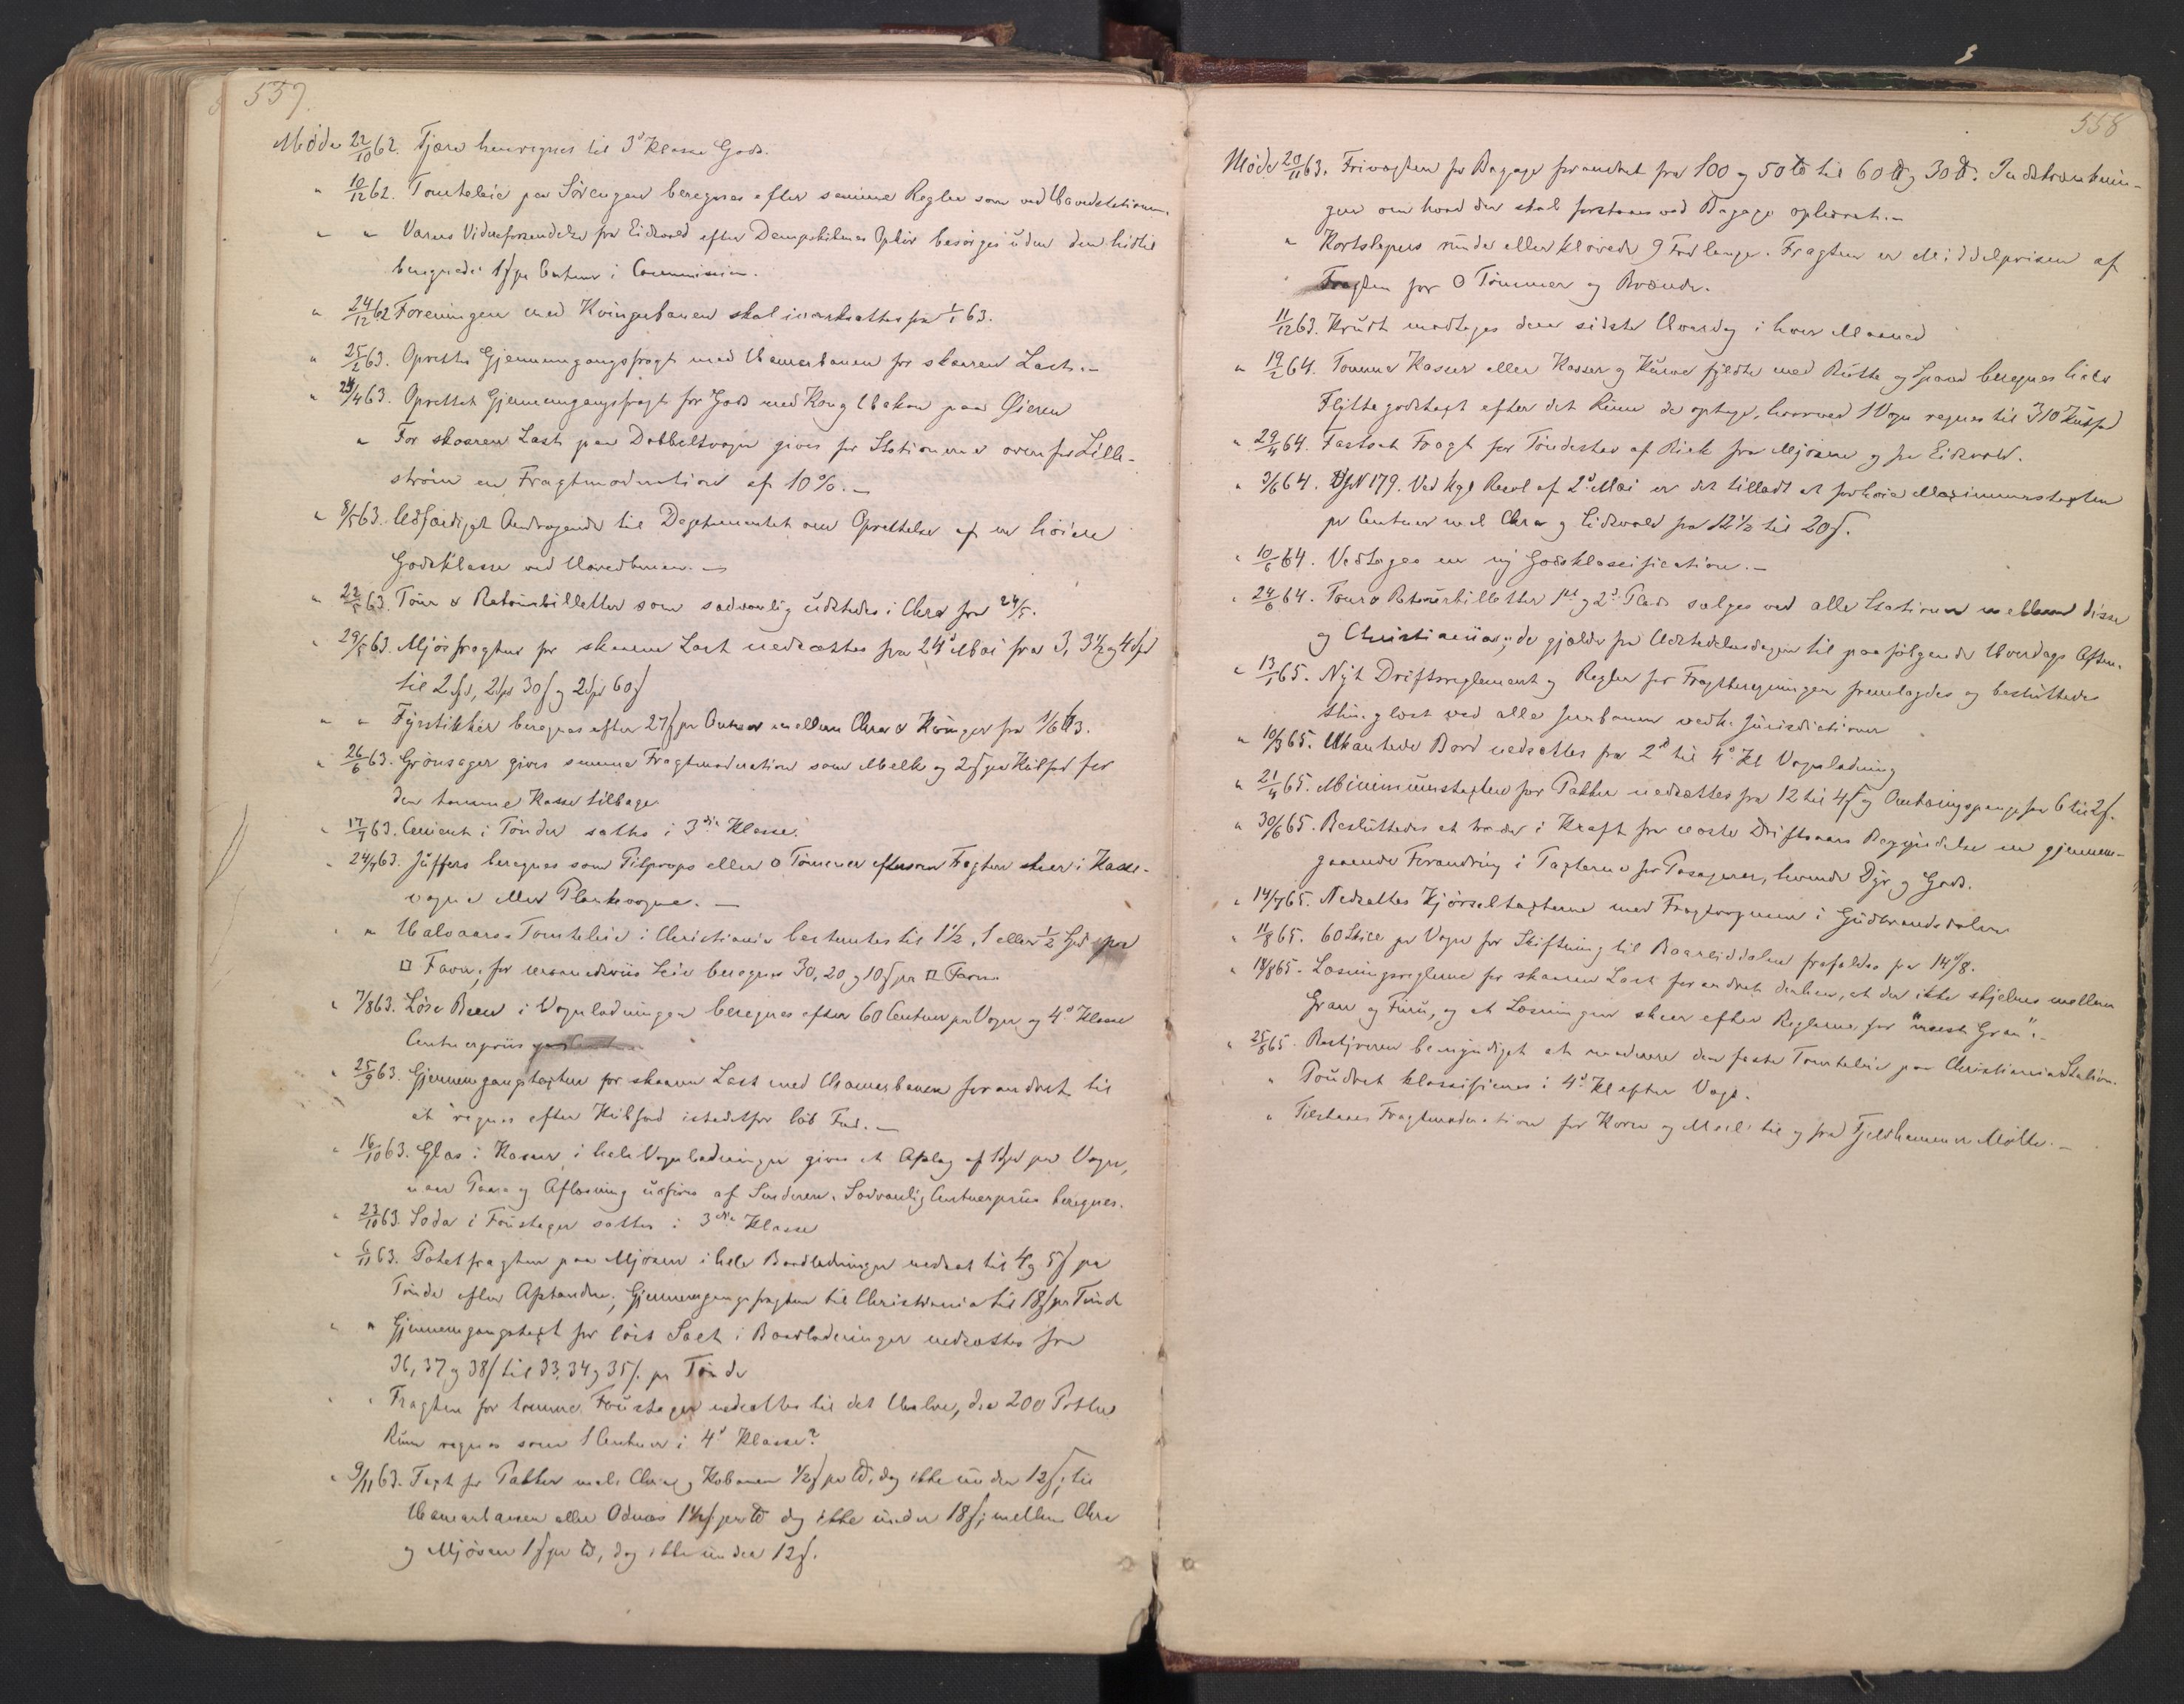 557.
Møde 22/10 62. Tjære henregnes til 3die Klasse Gods.
" 10/12 62. Tomteleie paa Sørengen beregnes efter samme Regler som ved Hovedstationen.
" " Varers Videreforsendelse fra Eidsvold efter Dampskibenes Ophør besørges uden den hidtil
beregnede 1ß pr Centner i Commission.
" 24/12 62 Foreningen med Kongsvingerbanen skal iværksættes fra 1/1 63.
" 25/2 63. Oprettes Gjennemgangsfragt med Hamarbanen for skaaren Last.-
" 24/4 63. Oprettet Gjennemgangsfragt for Gods med Kong Hakon paa Øieren
" For skaaren Last paa Dobbeltvogn gives for Stationerne ovenfor Lille-
strøm en Fragtmoderation af 10%.-
" 8/5 63. Udfærdiget Andragende til Departementet om Oprettelse af en høiere
Godsklasse ved Hovedbanen.-
" 22/5 63. Tour & Retourbilletter som sædvanlig udstedes i Chra fra 24/5.
" 29/5 63. Mjøsfragten for skaaren Last nedsættes fra 24de Mai fra 3, 3½ og 4 Spd
til 2 Spd, 2 Spd 30ß og 2 Spd 60ß
" " Fyrstikker beregnes efter 27ß pr Centner mellem Chra & Kongsvinger fra 1/6 63.
" 26/6 63. Grønsager gives samme Fragtmoderation som Melk og 2ß pr Kubfod for
den tomme Kasse tilbage.
" 17/7 63. Cement i Tønder sættes i 3die Klasse.
" 24/7 63. Juffers beregnes som Pitprops eller o Tømmer eftersom Fragten skeer i Kasse-
vogne eller Plankevogne.-
" " Halvaars Tomteleie i Christiania bestemtes til 1½, 1 eller ½ Spd pr
□ Favn; for maanedsviis Leie beregnes 30, 20 og 10ß pr □ Favn.
" 7/8 63. Løse Been i Vognladninger beregnes efter 60 Centner pr Vogn og 4de Klasse
Centnerpriis
" 25/9 63. Gjennemgangstaxten for skaaren Last med Hamarbanen forandret til
at regnes efter Kubfod istedetfor løb Fod.-
" 16/10 63. Glas i Kasser i hele Vognladninger gives et Afslag af 1 Spd pr Vogn,
naar Paa- og Aflæsning udføres af Senderen. Sædvanlig Centnerpriis beregnes.
" 23/10 63. Soda i Foustager sættes i 3die Klasse
" 6/11 63. Potetfragten paa Mjøsen i hele Baadladninger nedsat til 4 og 5ß pr
Tønde efter Afstanden; Gjennemgangsfragten til Christiania til 18ß pr Tønde
" " Gjennemgangstaxt for løst Salt i Baadladninger nedsættes fra
36, 37 og 38ß til 33, 34 og 35ß pr Tønde
" " Fragten for tomme Foustager nedsættes til det Halve, da 200 Potter
Rum regnes som 1 Centner i 4de Klasse?
" 9/11 63. Taxt for Pakker mell. Chra og Kobanen ½ß pr ℔, dog ikke under 12ß; til
Hamarbanen eller Odnæs 1½ß pr ℔ dog ikke under 18ß; mellem Chra
og Mjøsen 1ß pr ℔, dog ikke under 12ß.
558
Møde 20/11 63. Frivægten for Bagage forandret fra 100 og 50 ℔ til 60 ℔ og 30 ℔. Indskrænknin-
gen om hvad der skal forstaaes ved Bagage ophævet.-
" Kortslepers runde eller kløvede 9 Fod lange. Fragten er Middelprisen af
Fragten for o Tømmer og Brænde.
11/12 63. Krudt modtages den sidste Hverdag i hver Maaned
" 19/2 64. Tomme Kasser eller Kasser og Kurve fyldte med Potte og Spand beregnes halv
Flyttegodstaxt efter det Rum de optage, hvorved 1 Vogn regnes til 310 Kubfod
" 29/4 64. Fastsat Fragt for Tøndestav af Birk fra Mjøsen og fra Eidsvold.
" 3/6 64. N 179. Ved kgl Resol af 2den Mai er det tilladt at forhøie Maximumstaxten
pr Centner mel. Chra og Eidsvold fra 12½ til 20ß.
" 10/6 64. Vedtages en ny Godsklassification.-
" 24/6 64. Tour & Retourbilletter 1ste og 2den Plads sælges ved alle Stationer mellem disse
og Christiania; de gjælde fra Udstedelsesdagen til paafølgende Hverdags Aften.
" 13/1 65. Nyt Driftsreglement og Regler for Fragtberegningen fremlagdes og besluttedes
thinglæst ved alle Jernbanen vedk. Jurisdictioner
" 10/3 65. Ukantede Bord nedsættes fra 2den til 4de Kl Vognladning
" 21/4 65. Minimumstaxten for Pakker nedsættes fra 12 til 4ß og Ombringspenge fra 6 til 2ß.
" 30/6 65. Besluttedes at træde i Kraft fra næste Driftsaars Begyndelse en gjennem-
gaaende Forandring i Taxterne for Passagerer, levende Dyr og Gods.
" 14/7 65. Nedsattes Kjørselstaxterne med Fragtvognene i Gudbrandsdalen
" 11/8 65. 60 Skill. pr Vogn for Skiftning til Baarliddalen frafaldes fra 14de/8.
" 18/8 65. Læsningsreglerne for skaaren Last forandret derhen, at der ikke skjelnes mellem
Gran og Furu, og at Læsningen skeer efter Reglerne for "meest Gran".
" 25/8 65. Bestyreren bemyndiget at moderere den faste Tomteleie paa Christiania Station.
" Poudret klassificeres i 4de Kl efter Vægt.
" Tilstaaes Fragtmoderation for Korn og Meel til og fra Fjeldhammer Mølle.-